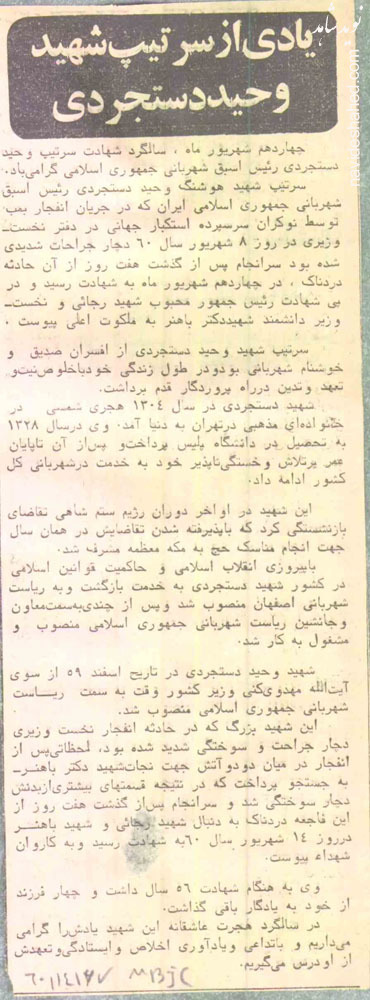 نوید شاهد
یادی از سرتیپ شهید
وحید دستجردی
چهاردهم شهریور ماه ، سالگرد شهادت سرتیپ وحید
دستجردی رئیس اسبق شهربانی جمهوری اسلامی گرامی‌باد.
سرتیپ شهید هوشنگ وحید دستجردی رئیس اسبق
شهربانی جمهوری اسلامی ایران که در جریان انفجار بمب
توسط نوکران سرسپرده استکبار جهانی در دفتر نخست‌ـ
وزیری در روز ۸ شهریور سال ۶۰ دچار جراحات شدیدی
شده بود سرانجام پس از گذشت هفت روز از آن حادثه
دردناک ، در چهاردهم شهریور ماه به شهادت رسید و در
پی شهادت رئیس جمهور محبوب شهید رجائی و نخست‌ـ
وزیر دانشمند شهیددکتر باهنر به ملکوت اعلی پیوست .
سرتیپ شهید وحید دستجردی از افسران صدیق و
خوشنام شهربانی بودودر طول زندگی خودباخلوص‌نیت‌و
تعهد وتدین درراه پروردگار قدم برداشت.
شهید دستجردی در سال ۱۳۰۴ هجری شمسی در
خانواده‌ای مذهبی درتهران به دنیا آمد. وی درسال ۱۳۲۸
به تحصیل در دانشگاه پلیس پرداخت‌و پس‌از آن تاپایان
عمر پرتلاش وخستگی‌ناپذیر خود به خدمت درشهربانی کل
کشور ادامه داد.
این شهید در اواخر دوران رژیم ستم شاهی تقاضای
بازنشستگی کرد که باپذیرفته شدن تقاضایش در همان سال
جهت انجام مناسک حج به مکه معظمه مشرف شد.
باپیروزی انقلاب اسلامی و حاکمیت قوانین اسلامی
در کشور شهید دستجردی به خدمت بازگشت وبه ریاست
شهربانی اصفهان منصوب شد وپس از چندی‌به‌سمت‌معاون
وجانشین ریاست شهربانی جمهوری اسلامی منصوب و
مشغول به کار شد.
شهید وحید دستجردی در تاریخ اسفند ۵۹ از سوی
آیت‌الله مهدوی‌کنی وزیر کشور وقت به سمت ریاست
شهربانی جمهوری اسلامی منصوب شد.
این شهید بزرگ که در حادثه انفجار نخست وزیری
دچار جراحت و سوختگی شدید شده بود، لحظاتی‌پس از
انفجار در میان دودوآتش جهت نجات‌شهید دکتر باهنرـ
به جستجو پرداخت که در نتیجه قسمتهای بیشتری‌ازبدنش
دچار سوختگی شد و سرانجام پس‌از گذشت هفت روز از
این فاجعه دردناک به دنبال شهید رجائی و شهید باهنر
درروز ۱۴ شهریور سال ۶۰به شهادت رسید وبه کاروان
شهداء پیوست.
وی به هنگام شهادت ۵۶ سال داشت و چهار فرزند
از خود به یادگار باقی گذاشت.
در سالگرد هجرت عاشقانه این شهید یادش‌را گرامی
می‌داریم و باتداعی ویادآوری اخلاص وایستادگی‌وتعهدش
از اودرس می‌گیریم.